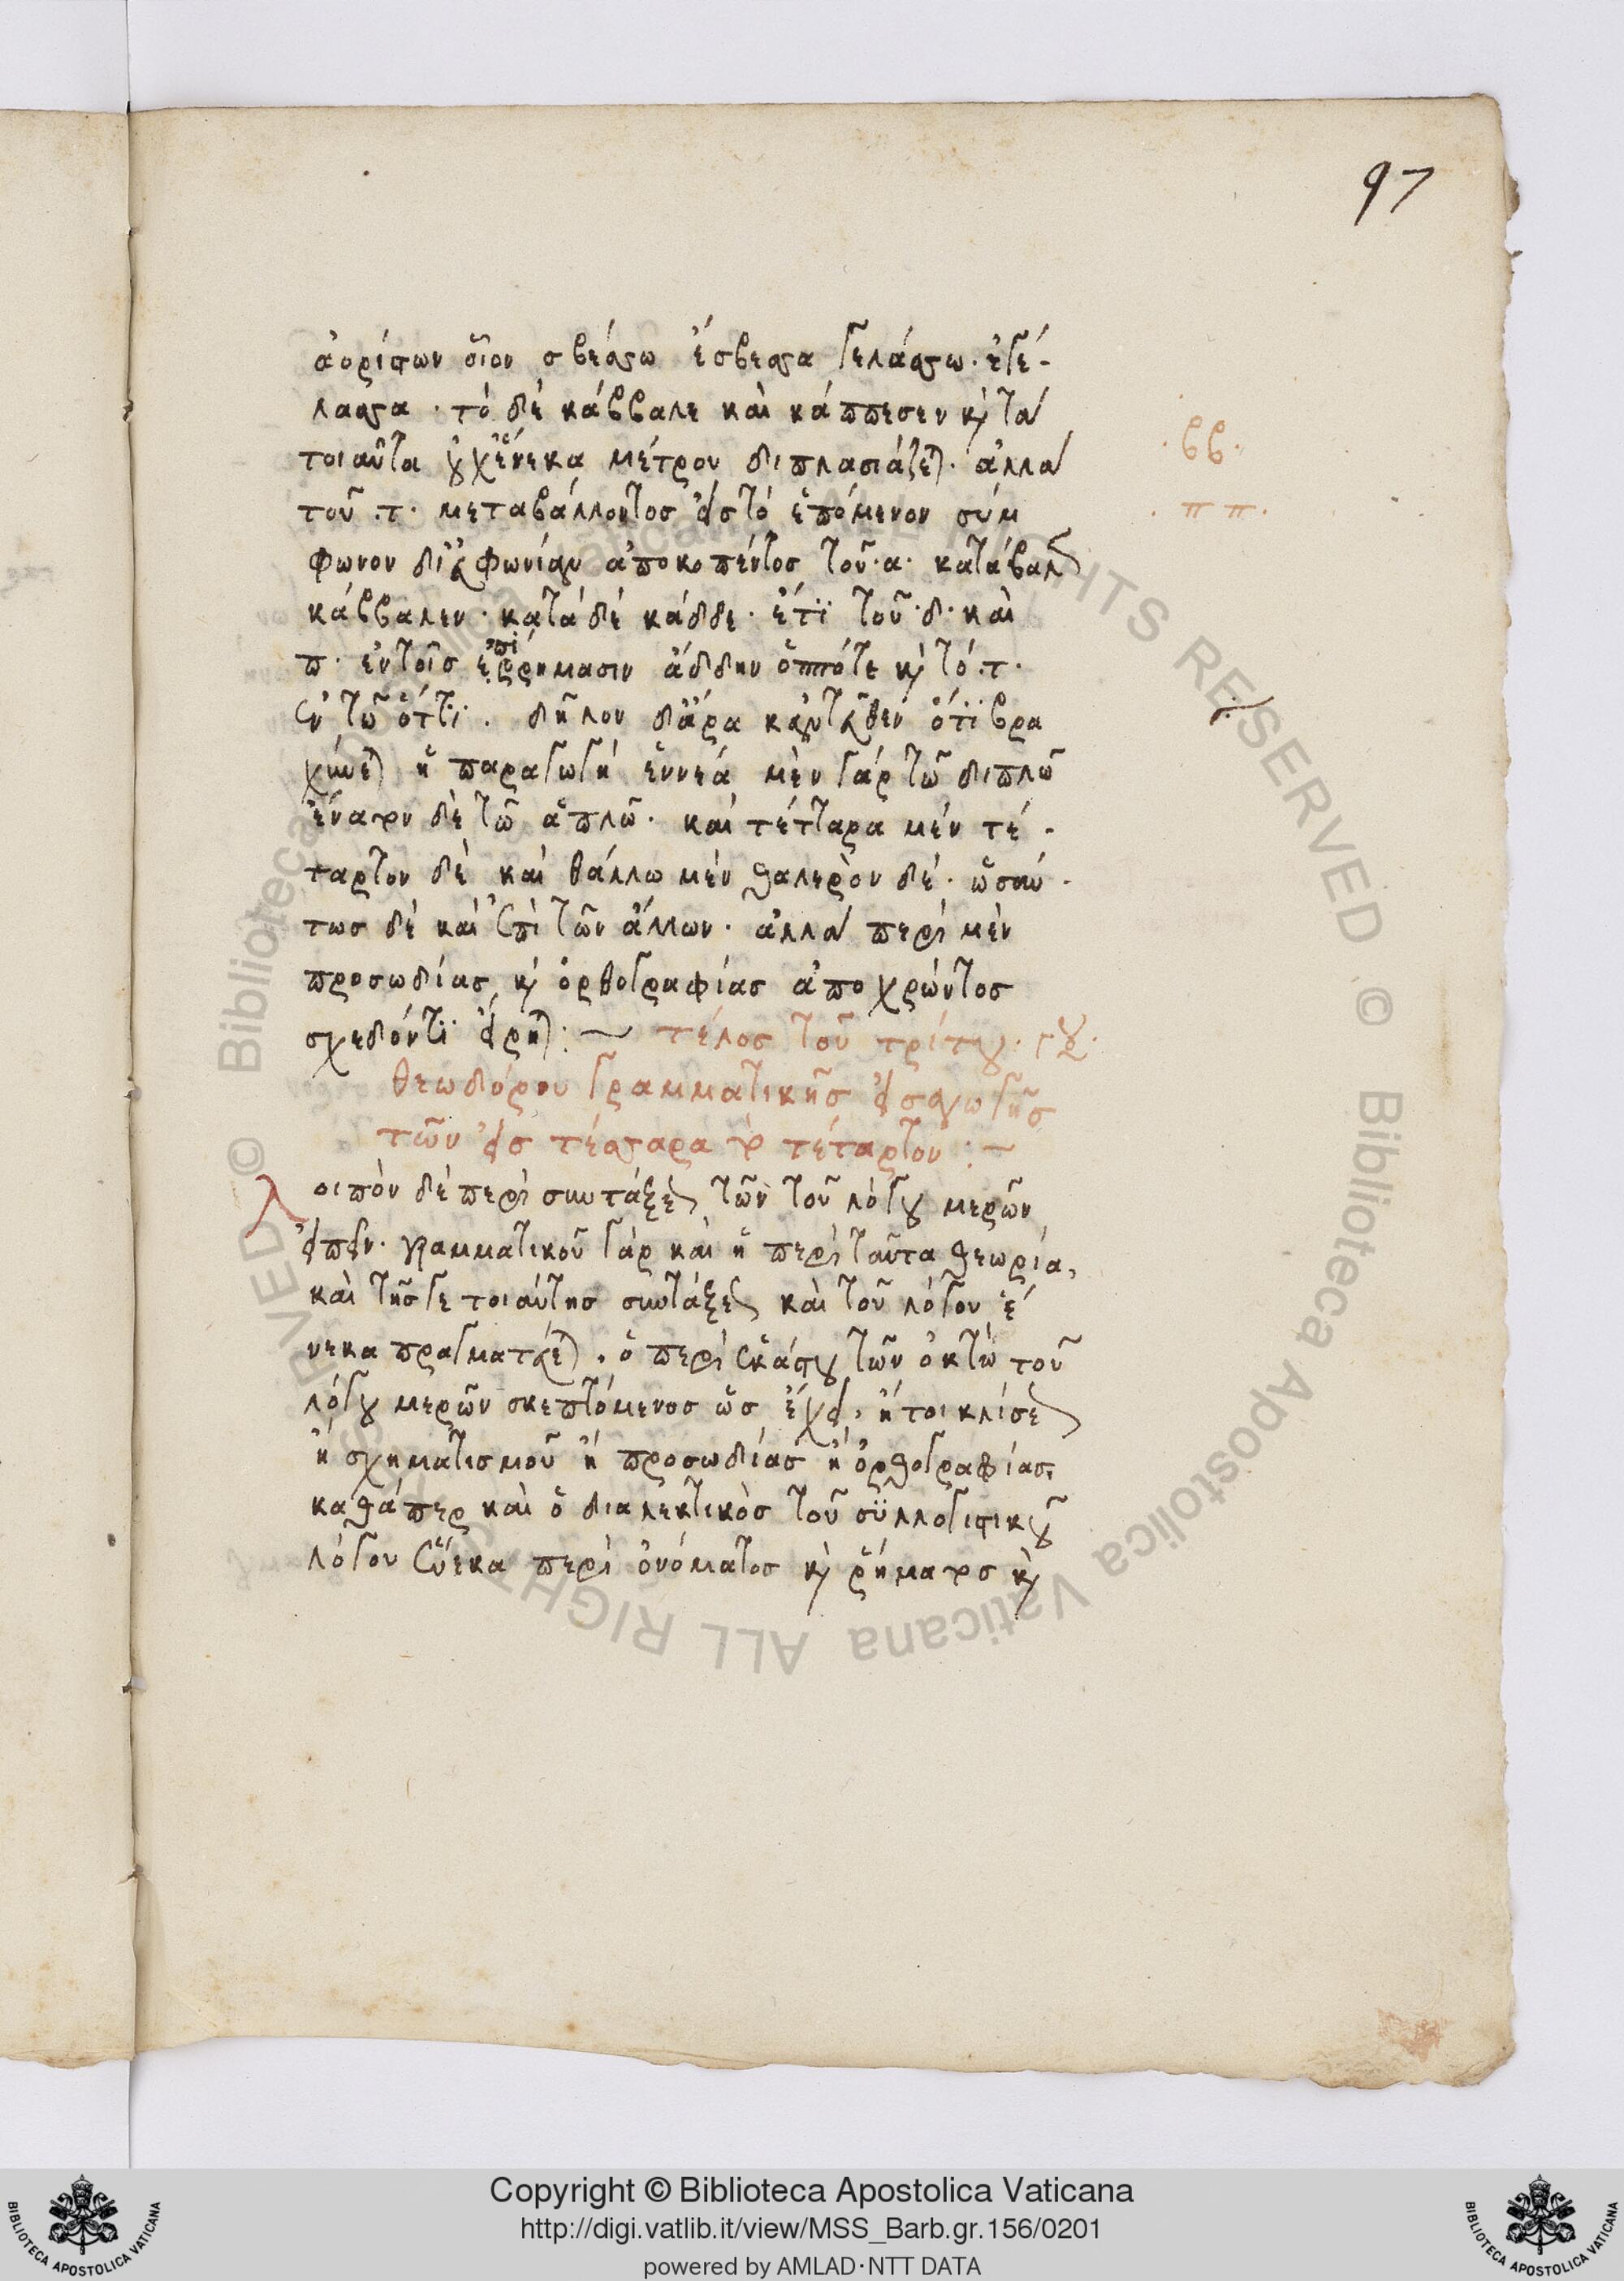 97
ἀορίστων οἷον σβέσσω ἔσβεσσα γελάσσω· ἐγέ-
λασσα · τὸ δὲ κάββαλε καὶ κάππεσεν κỳ τὰ
τοιαῦτα οὐχ ἕνεκα μέτρου διπλασιάζεται· ἀλλὰ
τοῦ ·τ· μεταβάλλοντος εἰς τὸ ἑπόμενον σύμ
φωνον δι' εὐφωνίαν ἀποκοπέντος τοῦ ·α· κατάβαλεν
κάββαλεν · κατὰ δὲ κάδδε · ἔτϊ τοῦ ·δ· καὶ
π · ἐν τοῖς ἐπιρρήμασιν ἄδδην ὁππότε κỳ τὸ ·τ·
ἐν τῶ ὅττϊ . δῆλον δ' ἄρα κἀνταῦθεν ὅτϊ βρα
χύνεται ἡ παραγωγὴ ἐννεά μὲν γὰρ τῶ διπλῶ
ἔνατον δὲ τῶ ἁπλῶ · καὶ τέτταρα μὲν τέ -
ταρτον δὲ καὶ θάλλω μὲν θαλερὸν δέ · ὡσαύ -
τως δὲ καὶ ἐπὶ τῶν ἄλλων · ἀλλὰ περὶ μὲν
προσωδίας κỳ ὀρθογραφίας ἀποχρώντος
σχεδόντϊ εἴρηται :~ τέλος τοῦ τρίτου ·
θεωδόρου γραμματικῆς εἰσαγωγῆς
τῶν εἰς τέσσαρα τὸ τέταρτον :~
λοιπὸν δὲ περὶ συντάξεως τῶν τοῦ λόγου μερῶν
εἰπεῖν · γραμματικοῦ γὰρ καὶ ἡ περὶ ταῦτα θεωρία,
καὶ τῆς γε τοιαύτης συντάξεως καὶ τοῦ λόγου ἕ
νεκα πραγματεύεται, ὁ περὶ ἑκάστου τῶν ὀκτὼ τοῦ
λόγου μερῶν σκεπτόμενος ὡς ἔχει, ἤτοι κλίσεως
ἢ σχηματισμοῦ ἢ προσωδίας ἢ ὀρθογραφίας,
καθάπερ καὶ ὁ διαλεκτικὸς τοῦ συλλογιστικοῦ
λόγου ἕνεκα περὶ ὀνόματος κỳ ῥήματος κỳ
· ββ ·
· π π ·
Copyright © Biblioteca Apostolica Vaticana
http://digi.vatlib.it/view/MSS_Barb.gr.156/0201
powered by AMLAD·NTT DATA
BIBLIOTECA APOSTOLICA VATICANA
BIBLIOTECA APOSTOLICA VATICANA
© Biblioteca Apostolica Vaticana ALL RIGHTS RESERVED
© Biblioteca Apostolica Vaticana ALL RIGHTS RESERVED